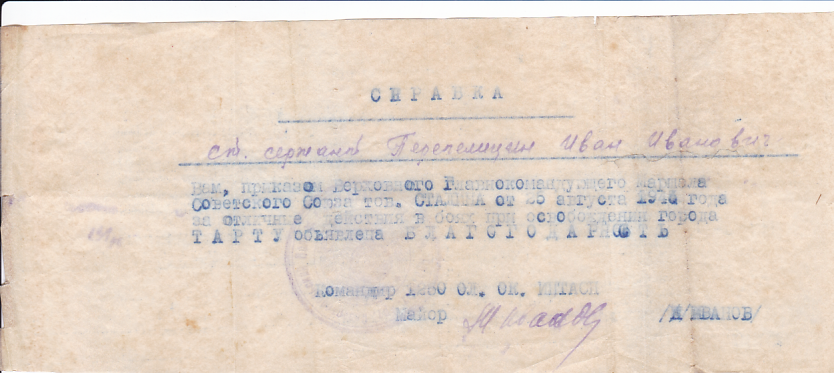 СПРАВКА
ст. сержант Перепелицин Иван Иванович
Вам, приказом Верховного Главнокомандующего Маршала
Советского Союза тов. СТАЛИНА от 25 августа 1944 года
за отличные действия в боях при освобождении города
ТАРТУ объявлена БЛАГОДАРНОСТЬ
Командир
Майор /ИВАНОВ/